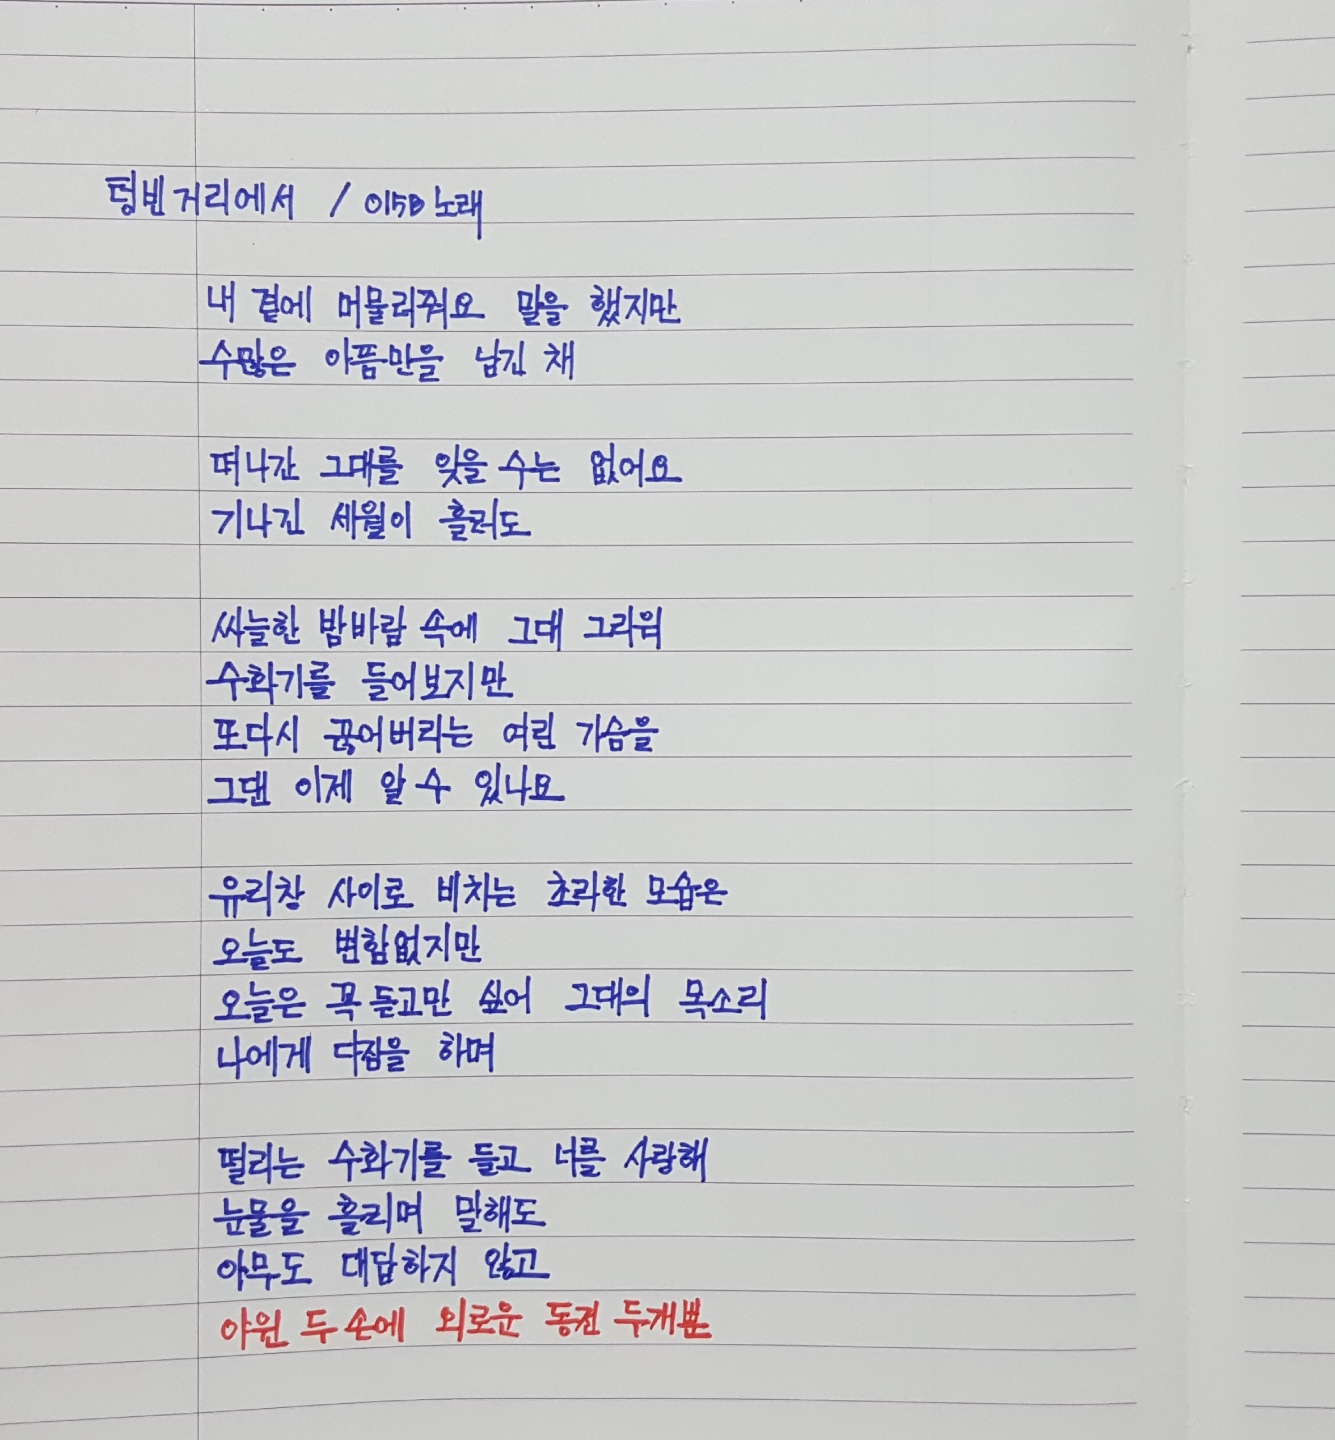 텅빈 거리에서 / 015B 노래
내 곁에 머물러줘요 말을 했지만
수많은 아픔만을 남긴 채
떠나간 그대를 잊을 수는 없어요
기나긴 세월이 흘러도
싸늘한 밤바람 속에 그대 그리워
수화기를 들어보지만
또다시 끊어버리는 여린 가슴을
그댄 이제 알 수 있나요
유리창 사이로 비치는 초라한 모습은
오늘도 변함없지만
오늘은 꼭 듣고만 싶어 그대의 목소리
나에게 다짐을 하며
떨리는 수화기를 들고 너를 사랑해
눈물을 흘리며 말해도
아무도 대답하지 않고
야윈 두 손에 외로운 동전 두개뿐